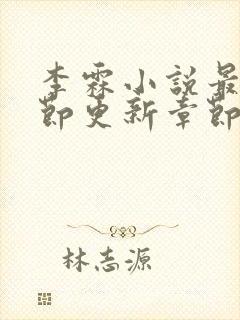 李霖小說最
節更新章節
林志源